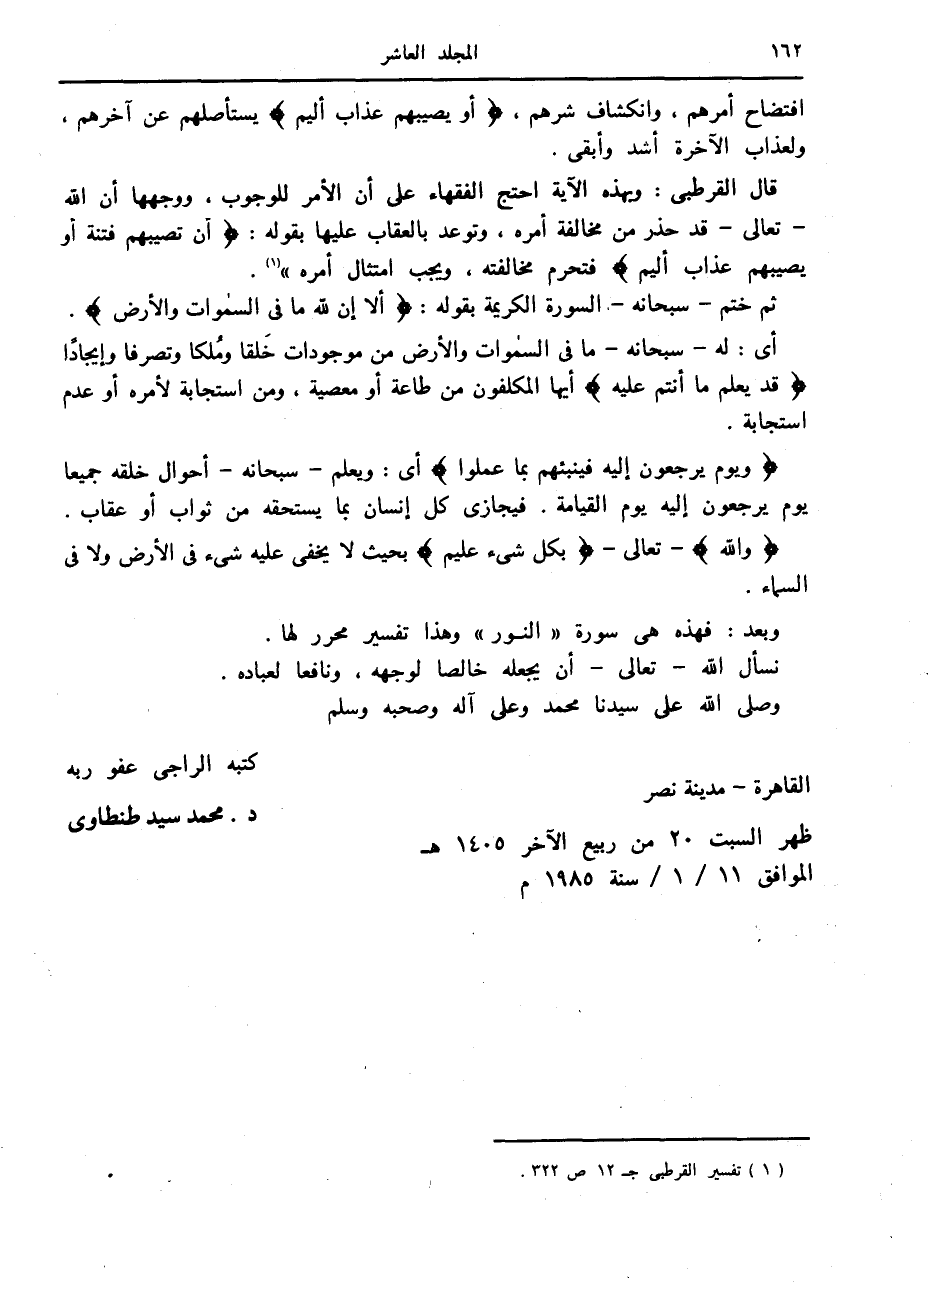 ١٦٢ المجلد العاشر
افتضاح أمرهم ، وانكشاف شرهم ، ﴿ أو يصيبهم عذاب أليم ﴾ يستأصلهم عن آخرهم ،
ولعذاب الآخرة أشد وأبقى .
قال القرطبى : وبهذه الآية احتج الفقهاء على أن الأمر للوجوب ، ووجهها أن الله
– تعالى – قد حذر من مخالفة أمره ، وتوعد بالعقاب عليها بقوله : ﴿ أن تصيبهم فتنة أو
يصيبهم عذاب أليم ﴾ فتحرم مخالفته ، ويجب امتثال أمره »(١) .
ثم ختم – سبحانه – السورة الكريمة بقوله : ﴿ ألا إن لله ما فى السمٰوات والأرض ﴾ .
أى : له – سبحانه – ما فى السمٰوات والأرض من موجودات خَلقا ومُلكا وتصرفا وإيجادًا
﴿ قد يعلم ما أنتم عليه ﴾ أيها المكلفون من طاعة أو معصية ، ومن استجابة لأمره أو عدم
استجابة .
﴿ ويوم يرجعون إليه فينبئهم بما عملوا ﴾ أى : ويعلم – سبحانه – أحوال خلقه جميعا
يوم يرجعون إليه يوم القيامة . فيجازى كل إنسان بما يستحقه من ثواب أو عقاب .
﴿ والله ﴾ – تعالى – ﴿ بكل شىء عليم ﴾ بحيث لا يخفى عليه شىء فى الأرض ولا فى
السماء .
وبعد : فهذه هى سورة « النـور » وهذا تفسير محرر لها .
نسأل الله – تعالى – أن يجعله خالصا لوجهه ، ونافعا لعباده .
وصلى الله على سيدنا محمد وعلى آله وصحبه وسلم
كتبه الراجى عفو ربه
القاهرة – مدينة نصر
د . محمد سيد طنطاوى
ظهر السبت ٢٠ من ربيع الآخر ١٤٠٥ هـ
الموافق ١١ / ١ / سنة ١٩٨٥ م
( ١ ) تفسير القرطبى جـ ١٢ ص ٣٢٢ .